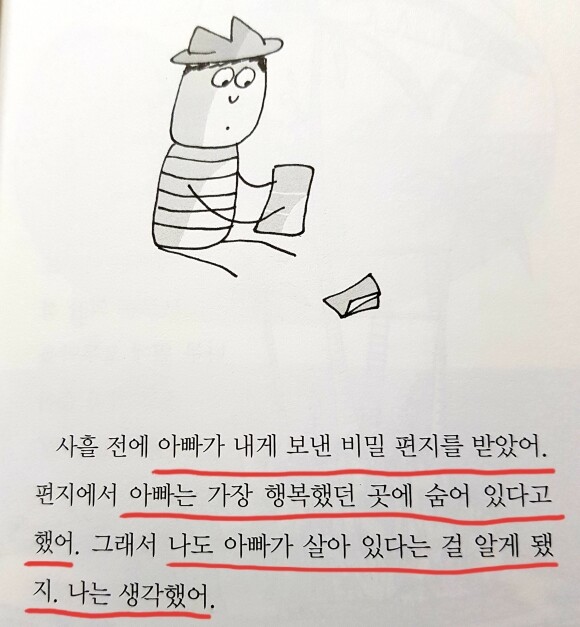 사흘 전에 아빠가 내게 보낸 비밀 편지를 받았어.
편지에서 아빠는 가장 행복했던 곳에 숨어 있다고
했어. 그래서 나도 아빠가 살아 있다는 걸 알게 됐
지. 나는 생각했어.